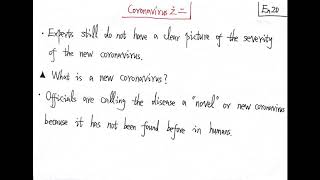 Coronavirus 之二
En.20
• Experts still do not have a clear picture of the severity
of the new coronavirus.
▲ What is a new coronavirus?
• Officials are calling the disease a "novel" or new coronavirus
because it has not been found before in humans.